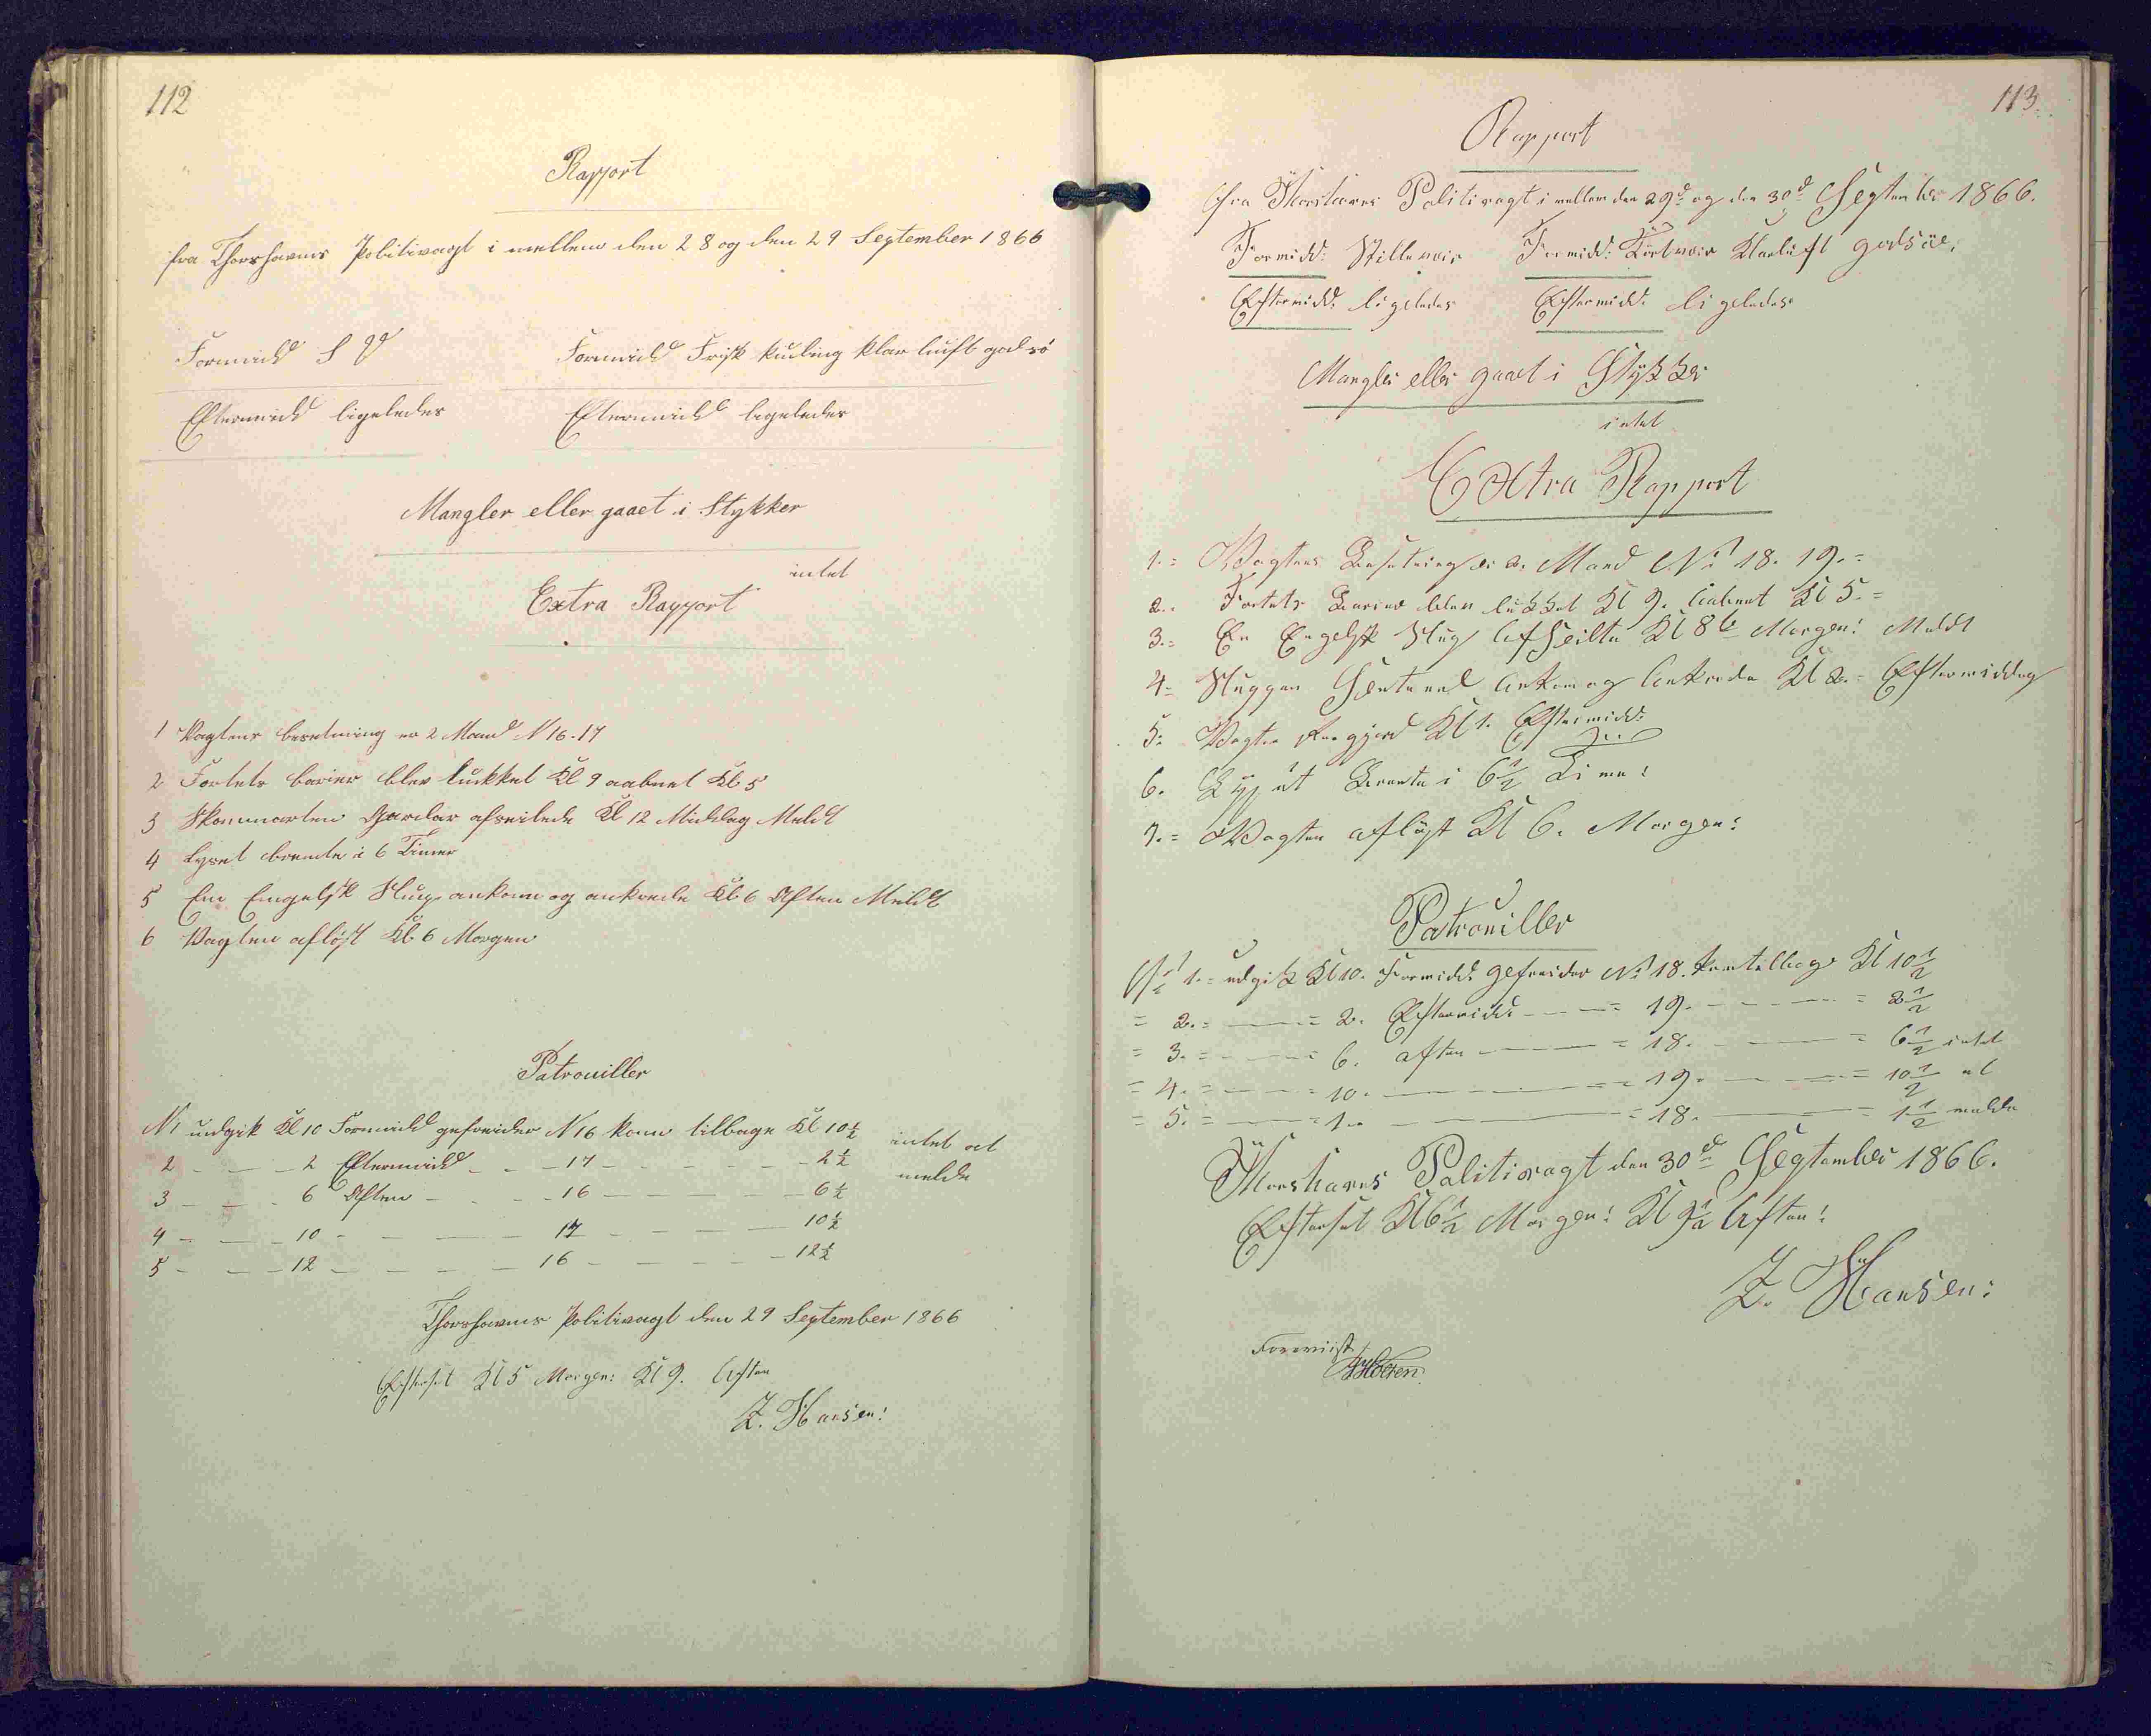 112
Rapport
fra Thorshavns Politivagt i mellem den 28 og den 29 September 1866
Formidd S V Formidd Frisk kuling klar luft god sö
Eftermidd ligeledes Eftermidd ligeledes
Mangler eller gaaet i Stykker
intet
Extra Rapport
1 Vagtens besetning er 2 Mand N 16-17
2 Fortets barier blev lukket Kl 9 aabnet Kl 5
3 Skonnarten afseilede Kl 12 Middag Meldt
4 Lyset brendte i 6 Timer
5 En Engelsk Slup ankom og ankrede Kl 6 Aften Meldt
6 Vagten aflöst Kl 6 Morgen
Patrouiller
N 1 udgik Kl 10 Formidd gefreider N 16 kom tilbage Kl 10½ intet at
2 - - - 2 Eftermidd - - - 17 - - - - - 2½ melde
3 - - - 6 Aften - - - 16 - - - - 6½
4 - - - 10 - - - - 17 - - - - 10½
5 - - - 12 - - - - 16 - - - - 12½
Thorshavns Politivagt den 29 September 1866
Efterset Kl 5 Morgen: Kl 9. Aften
Z. Hansen:
113.
Rapport
fra Thorshavns Politivagt i mellem den 29d og den 30d September 1866.
Formidd: Stille Formidd: Klarluft godsöe,
Eftermidd: ligeledes Eftermidd: ligeledes
Mangler eller gaaet i Stykker
intet
Extra Rapport
1.= Vagtens Besetning er 2. Mand No 18. 19.=
2.= Fortets Barier blev lukket Kl 9. aabnet Kl 5.=
3.= En Engelsk Slup Afseilte Kl 8 Morgen: Meldt
4= Sluppen Ankom og Ankrede Kl 2.= Eftermiddag
5= Vagten Kl 1. Eftermidd:
6. Brente i 6½ Time:
7.= Vagten aflöst Kl 6. Morgen:
Patrouiller
No 1.= udgik Kl 10. Formidd: gefreider No 18. kom tilbage Kl 10½
= 2.= - - = 2. Eftermidd: - - = 19. - - - = 2½
= 3.= - - = 6. aften - - = 18. - - - = 6½ intet
= 4.= - - = 10. - - - = 19. - - - = 10½ at
= 5.= - - = 1. - - - = 18. - - - = 1½ melde
Thorshavns Politivagt den 30d September 1866.
Efterset Kl 6½ Morgen: Kl 9½ Aften:
Z. Hansen:
Foreviist